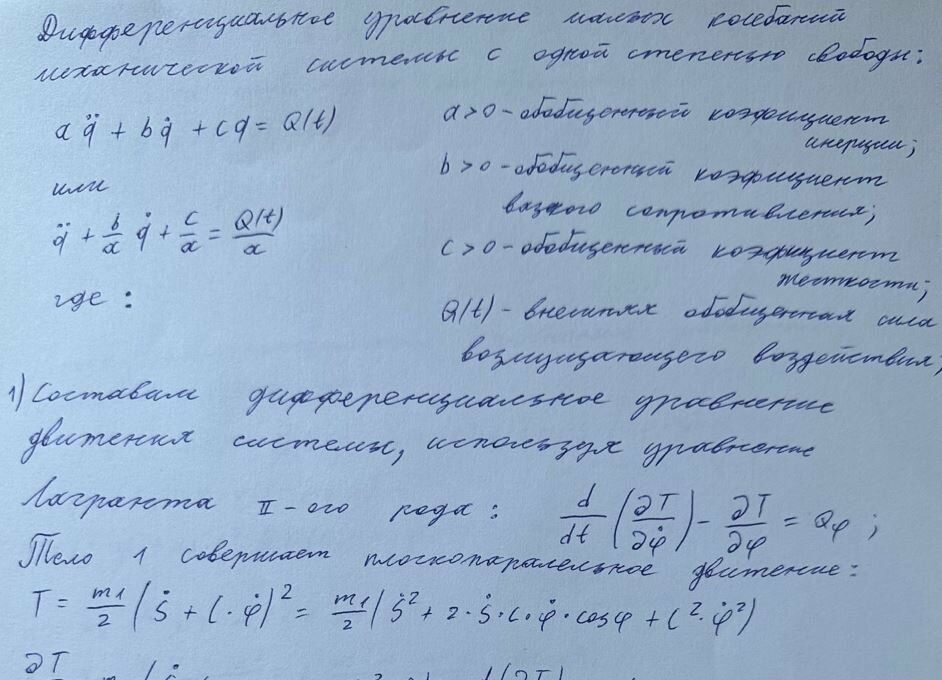 Дифференциальное уравнение малых колебаний
механической системы с одной степенью свободы:
a q̈ + b q̇ + c q = Q(t)
a > 0 - обобщенный коэфициент
инерции;
или
b > 0 - обобщенный коэфициент
вязкого сопротивления;
q̈ + b/a q̇ + c/a = Q(t)/a
c > 0 - обобщенный коэфициент
жесткости;
где :
Q(t) - внешняя обобщенная сила
возмущающего воздействия;
1) Составим дифференциальное уравнение
движения системы, используя уравнение
Лагранжа II-ого рода : d/dt (∂T/∂φ̇) - ∂T/∂φ = Qφ ;
Тело 1 совершает плоскопаралельное движение:
T = m1/2 (Ṡ + l · φ̇)² = m1/2 (Ṡ² + 2 · Ṡ · l · φ̇ · cosφ + l² · φ̇²)
∂T